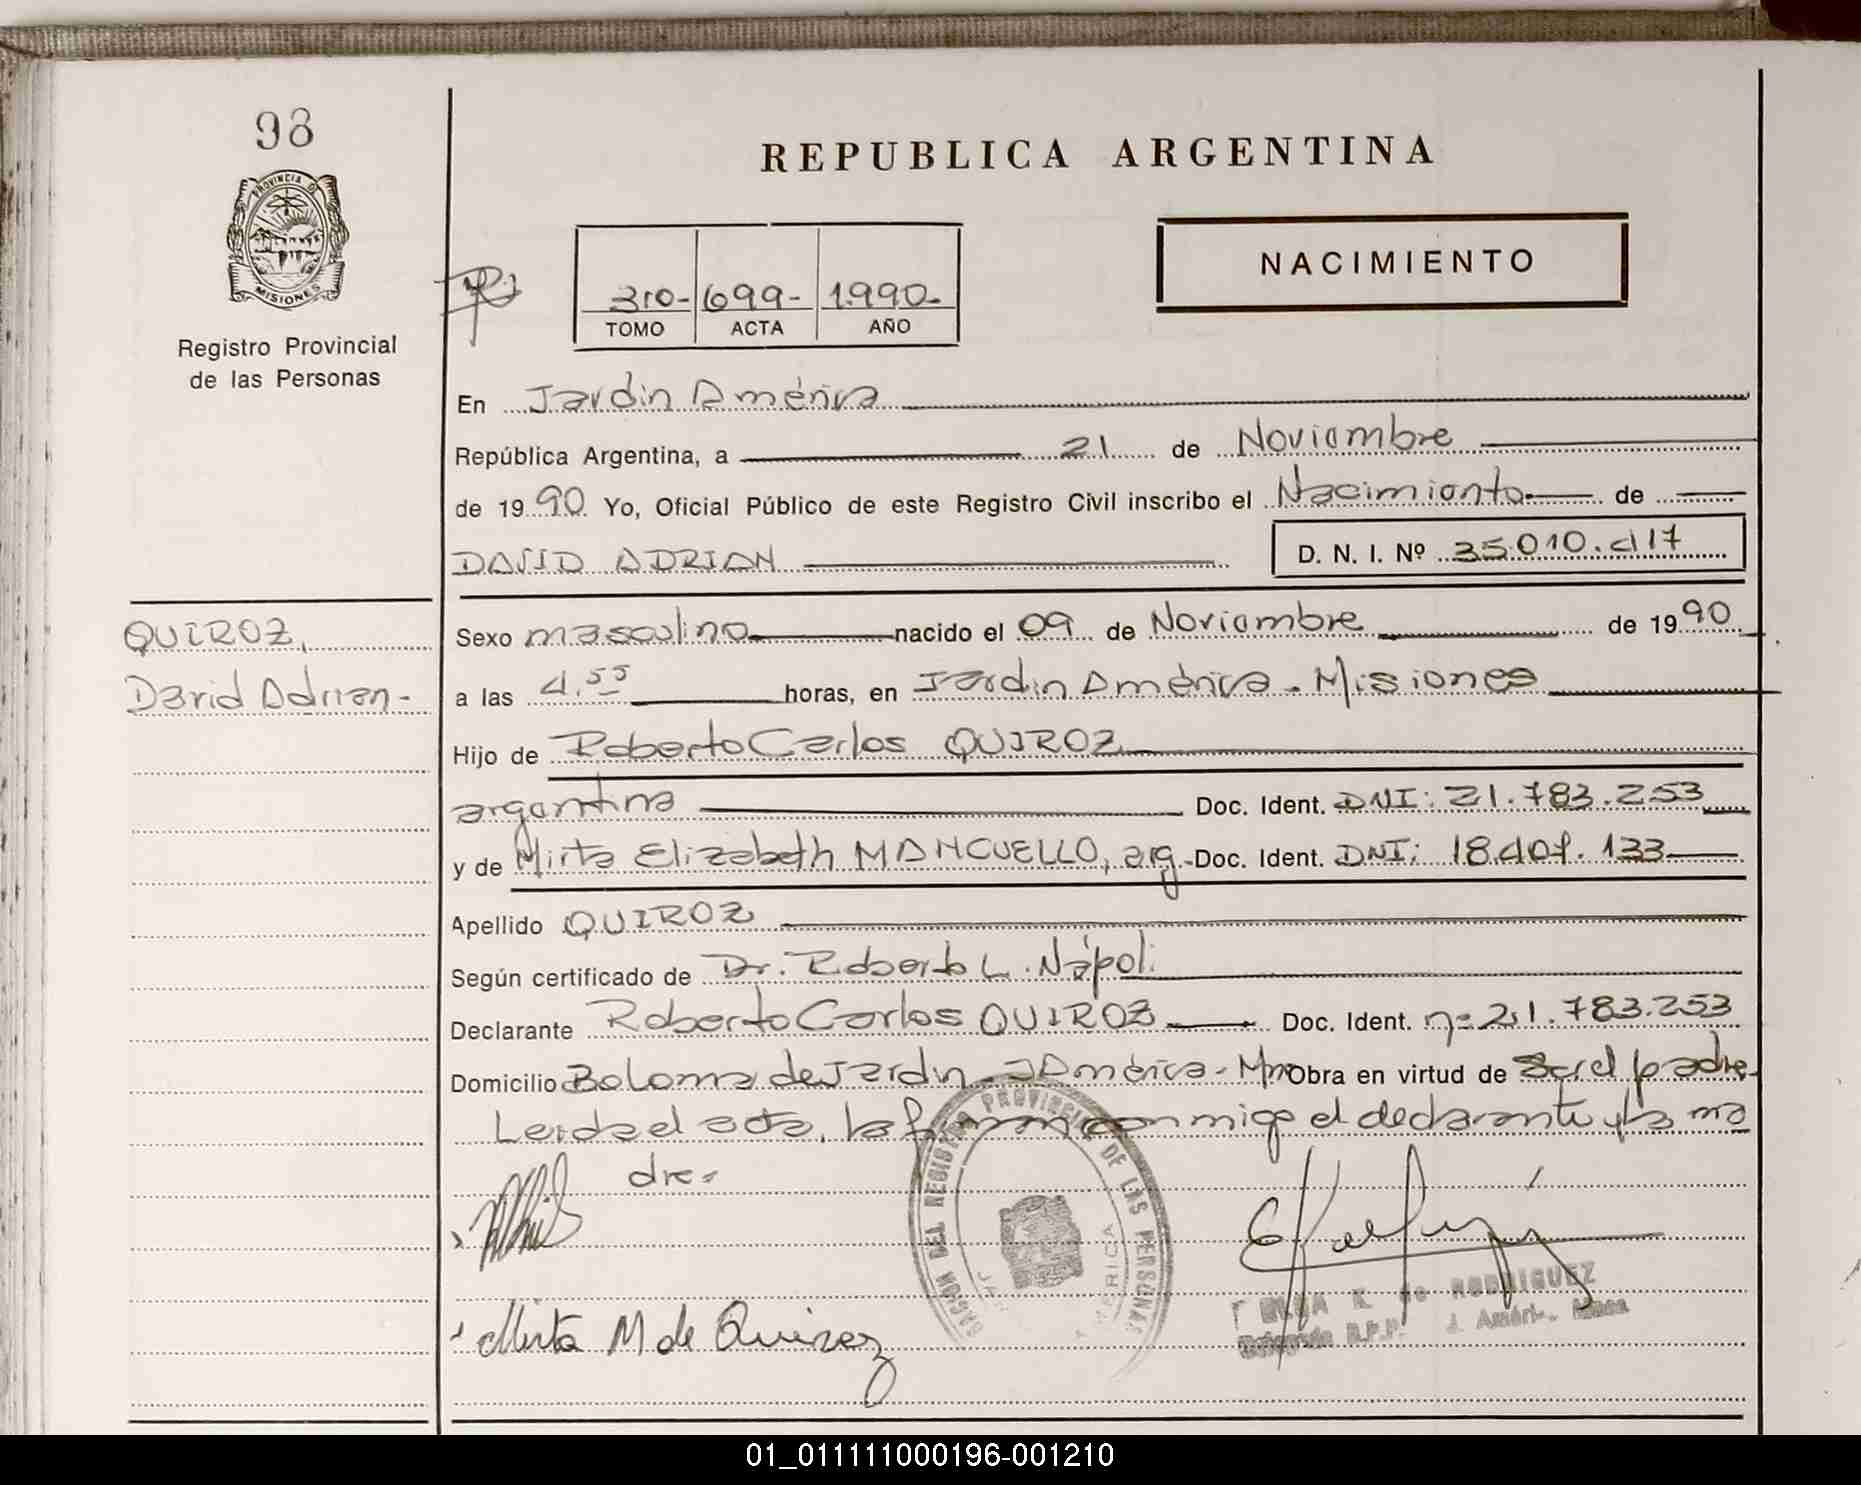 98
PROVINCIA DE
MISIONES
Registro Provincial
de las Personas
REPUBLICA ARGENTINA
NACIMIENTO
310- 699- 1990-
TOMO ACTA AÑO
En Jardin América
República Argentina, a 21 de Noviembre
de 1990 Yo, Oficial Público de este Registro Civil inscribo el Nacimiento de
DAVID ADRIAN D. N. I. Nº 35.010.417
QUIROZ,
David Adrian-
Sexo masculino nacido el 09 de Noviembre de 1990
a las 4.55 horas, en Jardin América - Misiones
Hijo de Roberto Carlos QUIROZ
argentina Doc. Ident. DNI: 21.783.253
y de Mirta Elizabeth MANCUELLO, arg.- Doc. Ident. DNI: 18.401.133
Apellido QUIROZ
Según certificado de Dr. Roberto L. Nápoli
Declarante Roberto Carlos QUIROZ Doc. Ident. nº 21.783.253
Domicilio de Jardin - J América - Mnes Obra en virtud de ser el padre-
Leida el acta, la firman conmigo el declarante y la ma
dre-
REGISTRO PROVINCIAL DE LAS PERSONAS
Mirta M de Quiroz
ELBA K. de RODRIGUEZ
Delegada R.P.P. J. Améri-. Mnes
01_011111000196-001210